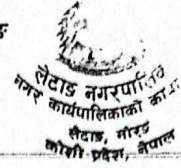 लेटाङ नगरपालिका
नगर कार्यपालिकाको का
लेटाङ, मोरङ
कोशी प्रदेश, नेपाल